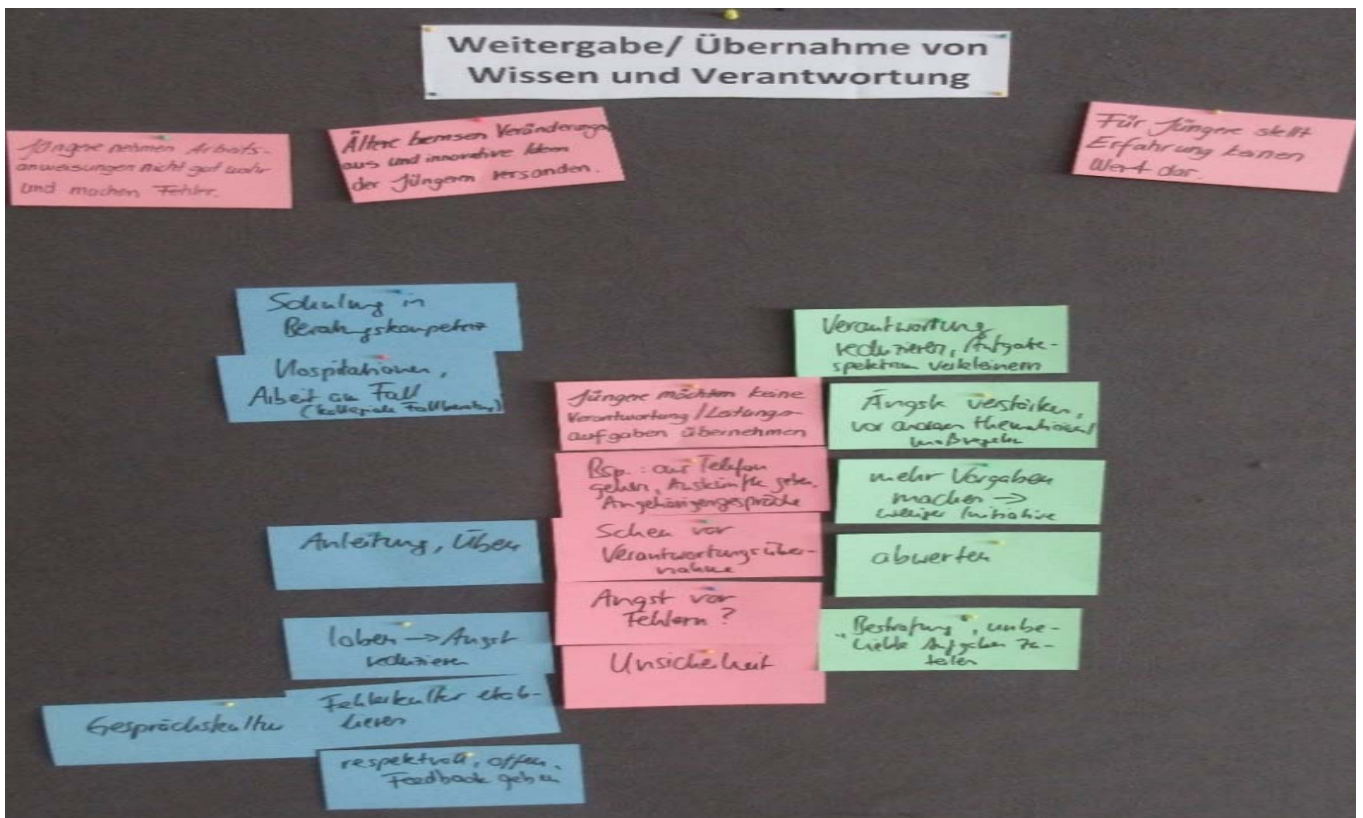 Weitergabe/ Übernahme von
Wissen und Verantwortung
Jüngere nehmen Arbeits-
anweisungen nicht gut wahr
und machen Fehler.
Ältere bremsen Veränderungen
aus und innovative Ideen
der Jüngeren versanden.
Für Jüngere stellt
Erfahrung keinen
Wert dar.
Schulung in
Beratungskompetenz
Hospitationen,
Arbeit am Fall
(kollegiale Fallberatung)
Anleitung, Üben
loben → Angst
reduzieren
Gesprächskultur
Fehlerkultur etab-
lieren
respektvoll, offen,
Feedback geben
Jüngere möchten keine
Verantwortung/Leitungs-
aufgaben übernehmen
Bsp.: ans Telefon
gehen, Auskünfte geben,
Angehörigengespräche
Scheu vor
Verantwortungsüber-
nahme
Angst vor
Fehlern?
Unsicherheit
Verantwortung
reduzieren, Aufgaben-
spektrum verkleinern
Ängste verstärken,
vor anderen thematisieren/
maßregeln
mehr Vorgaben
machen →
weniger Initiative
abwerten
"Bestrafung", unbe-
liebte Aufgaben zu-
teilen